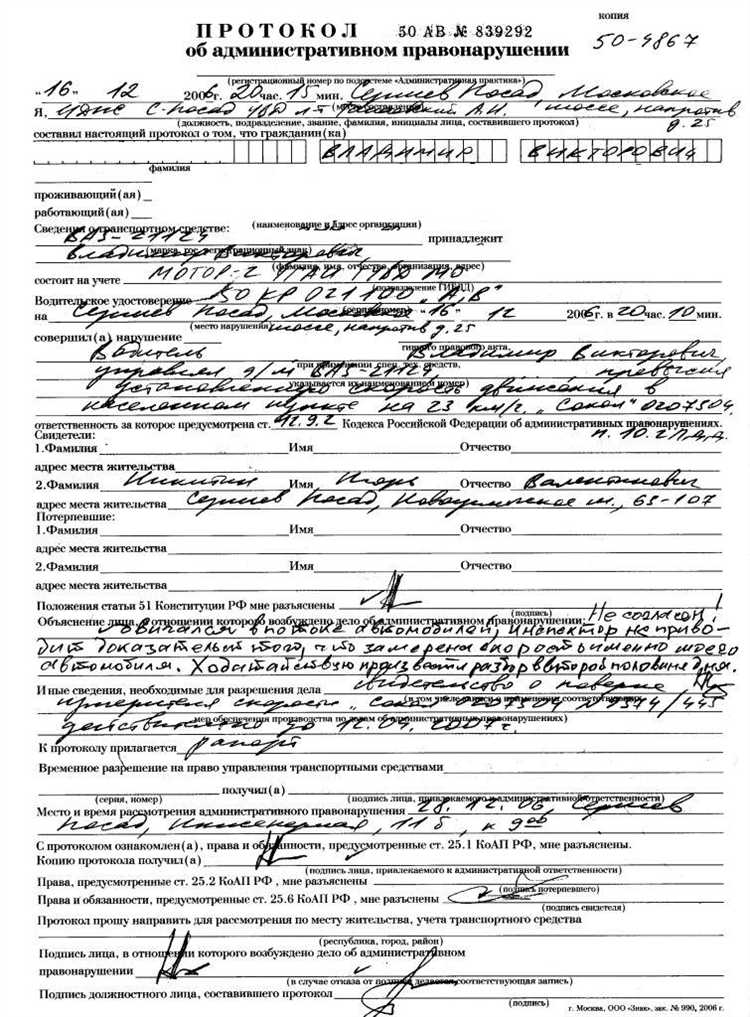 копия
ПРОТОКОЛ 50 АВ № 839292
об административном правонарушении 50-4867
(регистрационный номер по подсистеме «Административная практика»)
"16" 12 2006г. 20 час. 15 мин. Сергиев Посад, Московское
Я, С-Посад л-т А.Н. шоссе, напротив
(должность, подразделение, звание, фамилия, инициалы лица, составившего протокол) д. 25
составил настоящий протокол о том, что гражданин(ка)
ВЛАДИМИР ВИКТОРОВИЧ
фамилия
проживающий(ая)
работающий(ая)
(наименование и адрес организации)
Сведения о транспортном средстве:
ВАЗ-21124 принадлежит
(марка, гос. регистрационный знак)
Владимир Викторович,
(фамилия, имя, отчество, организация, адрес)
состоит на учете МОТОР-2 ГАИ МО
(подразделение ГИБДД)
Водительское удостоверение 50 КР 021100 "А,В"
на Сергиев Посад, Московск "16" 12 2006г. в 20 час. 10 мин.
(место нарушения) шоссе, напротив д. 25
совершил(а) нарушение
Водитель Владимир Викторович,
управлял а/м ВАЗ-21124, превысил
при применении спец. тех. средств,
указывается их наименование и номер)
установленную скорость движения в
населенном пункте на 23 км/г. "Сокол" 0207504,
ответственность за которое предусмотрена ст. 12.9.2 Кодекса Российской Федерации об административных правонарушениях.
п. 10.2 П.Д.Д.
Свидетели:
1.Фамилия Имя Отчество
адрес места жительства
2.Фамилия Никитин Имя Игорь Отчество Валентинович
адрес места жительства Сергиев Посад, ш., 63-107
Потерпевшие:
1.Фамилия Имя Отчество
адрес места жительства
2.Фамилия Имя Отчество
адрес места жительства
Положения статьи 51 Конституции РФ мне разъяснены
(подпись)
Объяснение лица, в отношении которого возбуждено дело об административном правонарушении: Не согласен!
Двигался в потоке автомобилей, инспектор не приво-
дит доказательств того, что замерена скорость именно моего
автомобиля. Ходатайствую произвести разбор во второй половине дня.
Иные сведения, необходимые для разрешения дела свидетельство о поверке
(в том числе данные о применении соответствующих
измерителя скорости "Сокол" 0207504
мер обеспечения производства по делам об административных правонарушениях)
действительно до 12.04.2007г.
К протоколу прилагается рапорт
Временное разрешение на право управления транспортными средствами
получил(а)
(серия, номер) (подпись лица, привлекаемого к административной ответственности)
Место и время рассмотрения административного правонарушения 28.12.06 Сергиев
Посад, Инженерная, 11б, к 9 00
С протоколом ознакомлен(а), права и обязанности, предусмотренные ст. 25.1 КоАП РФ, мне разъяснены.
Копию протокола получил(а)
(подпись лица, привлекаемого к административной ответственности)
Права, предусмотренные ст. 25.2 КоАП РФ , мне разъяснены
(подпись потерпевшего)
Права и обязанности, предусмотренные ст. 25.6 КоАП РФ , мне разъснены
(подпись свидетеля)
Протокол прошу направить для рассмотрения по месту жительства, учета транспортного средства
(республика, город, район)
Подпись лица, в отношении которого возбуждено дело об административном
правонарушении
(в случае отказа от подписи делается соответствующая запись)
Подпись должностного лица, составившего протокол
(подпись)
г. Москва, ООО «Знак», зак. № 990, 2006 г.